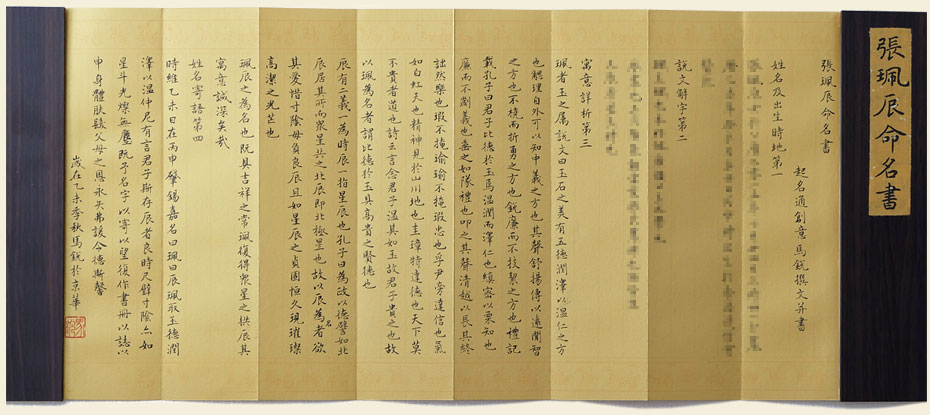 張珮辰命名書
張珮辰命名書
起名通創意馬銳撰文并書
姓名及出生時地第一
說文解字第二
寓意詳析第三
珮者玉之屬說文曰玉石之美有五德潤澤以温仁之方
也䚡理自外可以知中義之方也其聲舒揚傳以遠聞智
之方也不橈而折勇之方也銳廉而不技絜之方也禮記
載孔子曰君子比德於玉焉温潤而澤仁也縝密以栗知也
廉而不劌義也垂之如隊禮也叩之其聲清越以長其終
詘然樂也瑕不掩瑜瑜不掩瑕忠也孚尹旁達信也氣
如白虹天也精神見於山川地也圭璋特達德也天下莫
不貴者道也詩云言念君子温其如玉故君子貴之也故
以珮為名者謂比德於玉具高貴之賢德也
辰有二義一為時辰一指星辰也孔子曰為政以德譬如北
辰居其所而眾星共之北辰即北極星也故以辰為名者欲
其愛惜寸陰毋負良辰且如星辰之貞固恒久現璀璨
高潔之光芒也
珮辰之為名也既具吉祥之常珮復得眾星之拱辰其
寓意誠深矣哉
姓名寄語第四
時維乙未日在丙申肇錫嘉名曰珮曰辰珮取玉德潤
澤以温仲尼有言君子斯存辰者良時尺璧寸陰亦如
星斗光燦無塵既予名字以寄以望復作書冊以誌以
申身體膚髮父母之恩永矢弗諼令德斯馨
歲在乙未季秋馬銳於京華